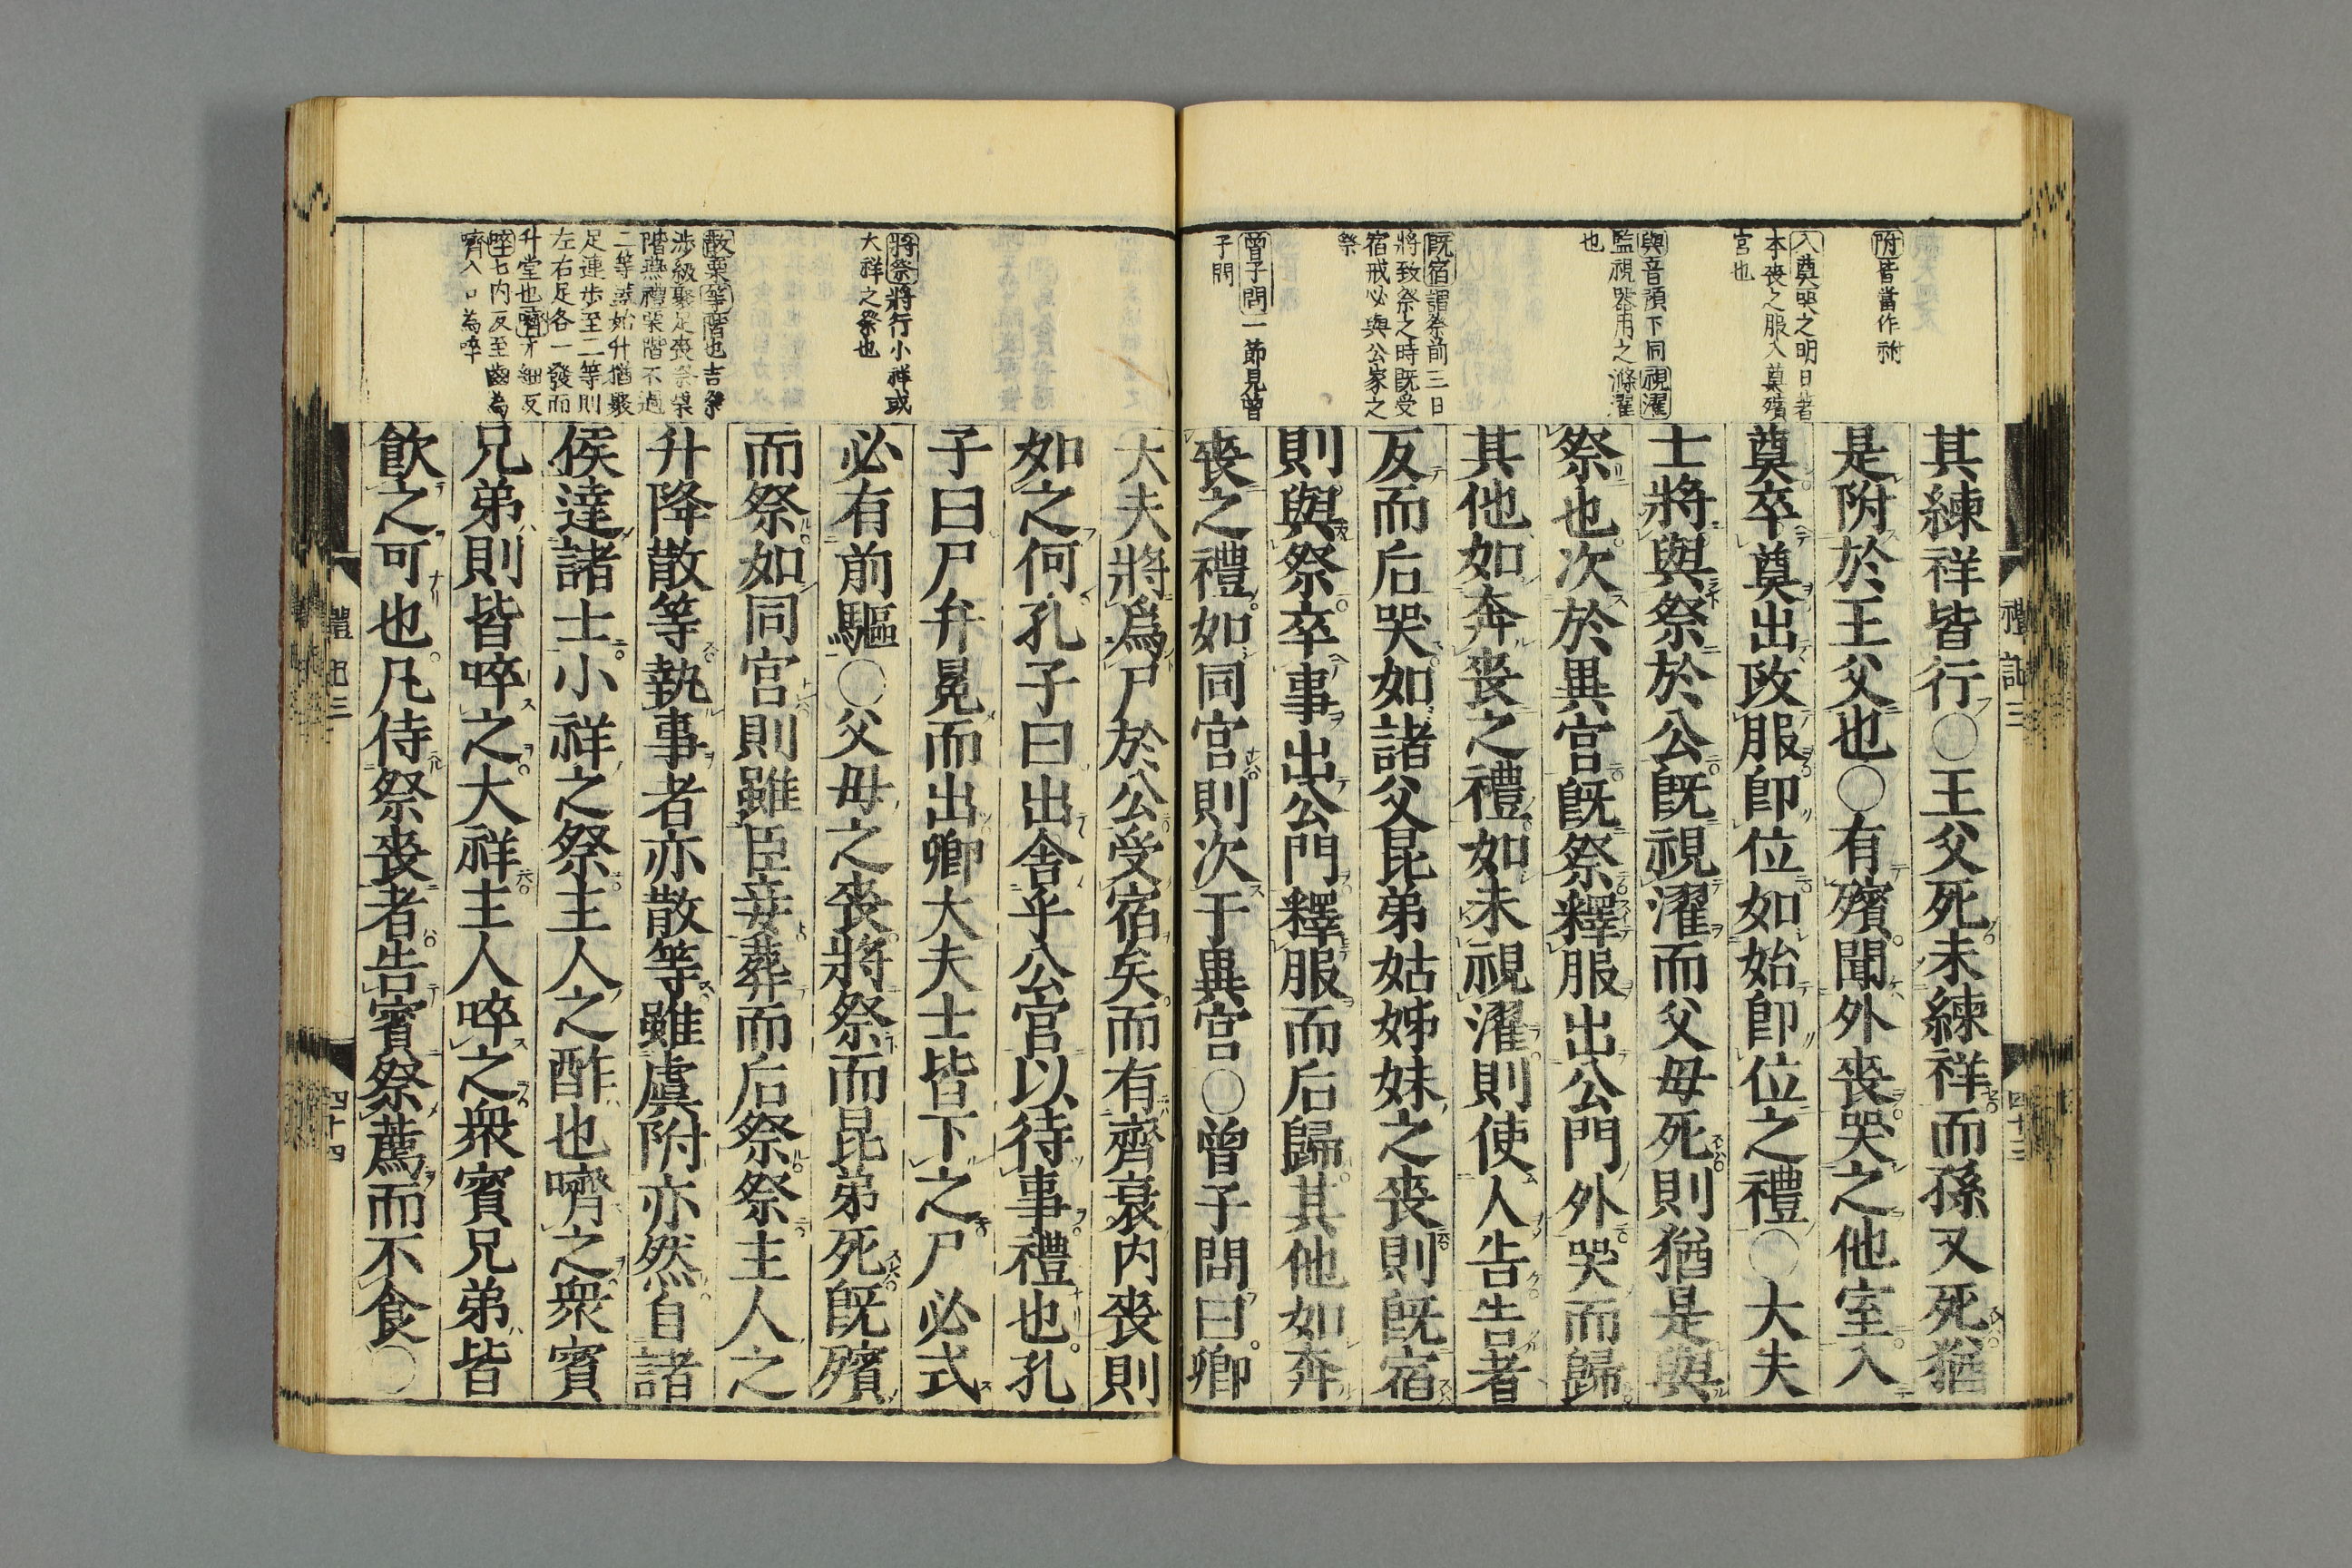 附皆當作祔
入奠哭之明日者
本喪之服入奠殯
宮也
與音預下同視濯
監視器用之滌濯
也
既宿謂祭前三日
將致祭之時既受
宿戒必與公家之
祭
曾子問一節見曾
子問
其練祥皆行○王父死未練祥而孫又死猶
是附於王父也○有殯聞外喪哭之他室入
奠卒奠出改服卽位如始卽位之禮○大夫
士將與祭於公既視濯而父母死則猶是與
祭也次於異宮既祭釋服出公門外哭而歸
其他如奔喪之禮如未視濯則使人告告者
反而后哭如諸父昆弟姑姊妹之喪則既宿
則與祭卒事出公門釋服而后歸其他如奔
喪之禮如同宮則次于異宮○曾子問曰卿
禮記三
四十三
將祭將行小祥或
大祥之祭也
散栗等階也吉祭
涉級聚足喪祭栗
階燕禮栗階不過
二等蓋始升猶聚
足連步至二等則
左右足各一發而
升堂也嚌才細反
啐七内反至齒為
嚌入口為啐
大夫將爲尸於公受宿矣而有齊衰内喪則
如之何孔子曰出舍乎公宮以待事禮也孔
子曰尸弁冕而出卿大夫士皆下之尸必式
必有前驅○父母之喪將祭而昆弟死既殯
而祭如同宮則雖臣妾葬而后祭祭主人之
升降散等執事者亦散等雖虞附亦然自諸
侯達諸士小祥之祭主人之酢也嚌之衆賓
兄弟則皆啐之大祥主人啐之衆賓兄弟皆
飮之可也凡侍祭喪者告賓祭薦而不食○
禮記三
四十四